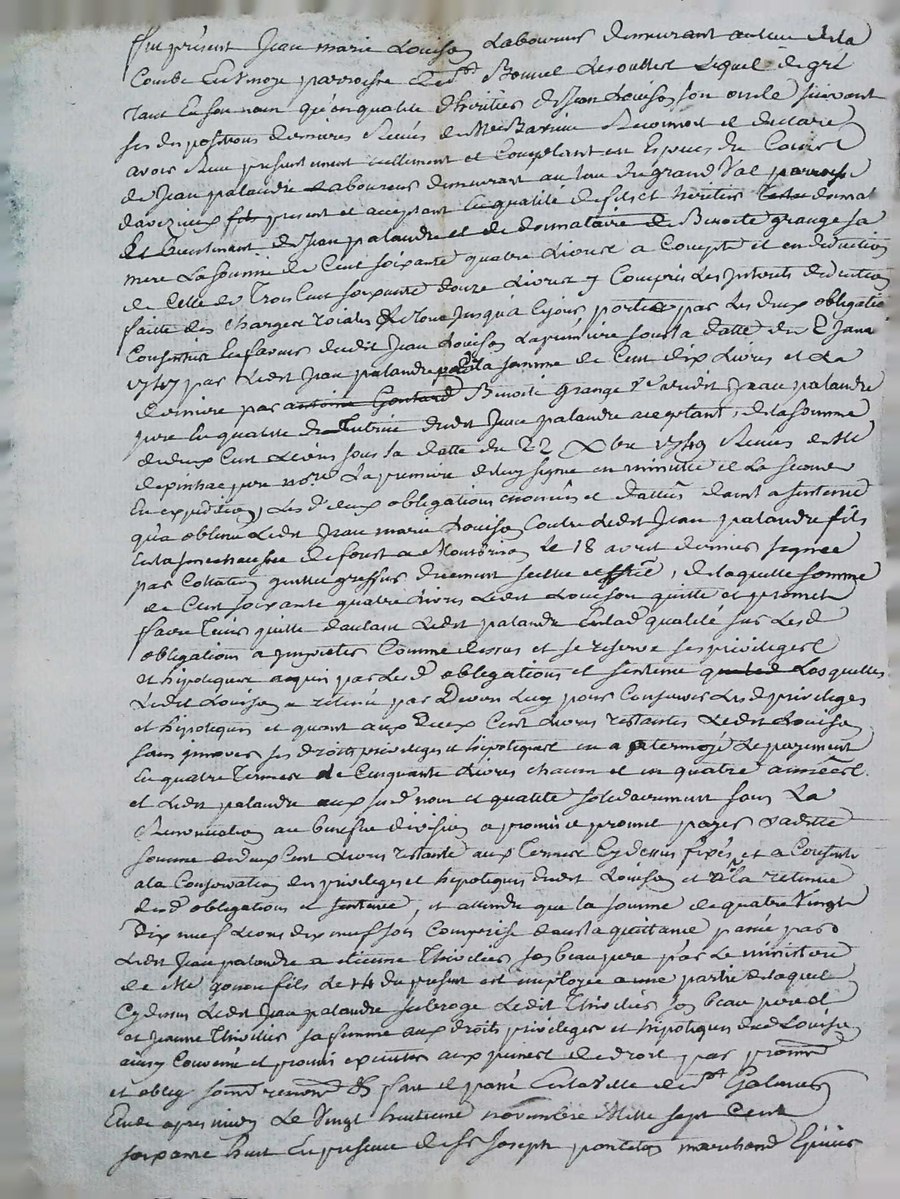 fut présent Jean marie Louison Laboureur demeurant au lieu de la
Combe En moze parroisse de St Bonnet Les oulles Lequel de gré
tant En son nom qu'en qualité d'héritier de Jean Louison son oncle suivant
ses dispositions dernieres Reçues de Me Barrieu Reconnoit et declare
avoir Reçu présentement réellement et Comptant en Especes du Cours
de Jean palandre Laboureur demeurant au lieu du grand Val parroisse
daveizieux present et acceptant En qualité de fils et héritier
de Jean palandre et de donnataire de Benoite grange sa
mere La somme de Cent soixante quatre Livres a Compte et en deduction
de Celle de Trois Cent soixante douze Livres y Compris Les Interets deduction
faite des charges roiales de tout Jusqu'à Ce jour portée par Les deux obligations
Consenties En faveur dudit Jean Louison La premiere sous la datte du 2 Janv
1747 par Ledit Jean palandre pour la somme de Cent dix Livres et La
derniere par antoine Gontard Benoite Grange Ve dudit Jean palandre
pere En qualité de Tutrice dudit Jean palandre acceptant, de la somme
de deux Cent Livres sous la datte du 22 Xbre 1749 Reçues de Me
depinhac pere nore La premiere de luy signé en minutte et La seconde
En expedition, Les deux obligations énoncées et dattées dans la sentence
qu'a obtenu Ledit Jean marie Louison Contre Ledit Jean palandre fils
En la senechaussée de forest a Montbrison Le 18 avril dernier signée
par Collation greffier duement scellée et, de laquelle somme
de Cent soixante quatre Livres Ledit Louison quitte et promet
faire Tenir quitte d'autant Ledit palandre En lad qualité sur Lesd
obligations a Interets Comme dessus et se reserve ses privileges
et hipoteques acquis par Lesd obligations et sentence Lesquelles
Ledit Louison a retiré par Devers Luy pour Conserver Lesd privileges
et hipoteques et quant aux Deux Cent Livres restantes Ledit Louison
sans innover ses droits privileges et hipoteques en a attermoyé Le payement
En quatre Termes de Cinquante Livres chacun et en quatre années
et Ledit palandre aux susd nom et qualité solidairement sous La
Renonciation au benefice division a promis et promet payer Ladite
somme de deux Cent Livres restante aux Termes Cy dessus fixés et a Consenti
a la Conservation des privileges et hipoteques dudit Louison et a la retenue
desd obligations et sentence, et attendu que la somme de quatre Vingt
Dix neuf Livres dix neuf sols Comprise dans la quittance passée par
Ledit Jean palandre a étienne Thivillier son beau pere par Le ministere
de Me gonon fils Le 14 du présent est employée a une partie de la quitte
Cy dessus Ledit Jean palandre subroge Ledit Thivillier son beau pere et
et Jeanne Thivillier sa femme aux droits privileges et hipoteques dud Louison
ainsy Convenu et promis executer aux peines de droit par promes
et oblig soum renon &c fait et passé En la Ville de St Galmier
Etude apres midy Le Vingt huitieme novembre Mille sept Cent
soixante huit En presence de Sr Joseph marchand Epicier